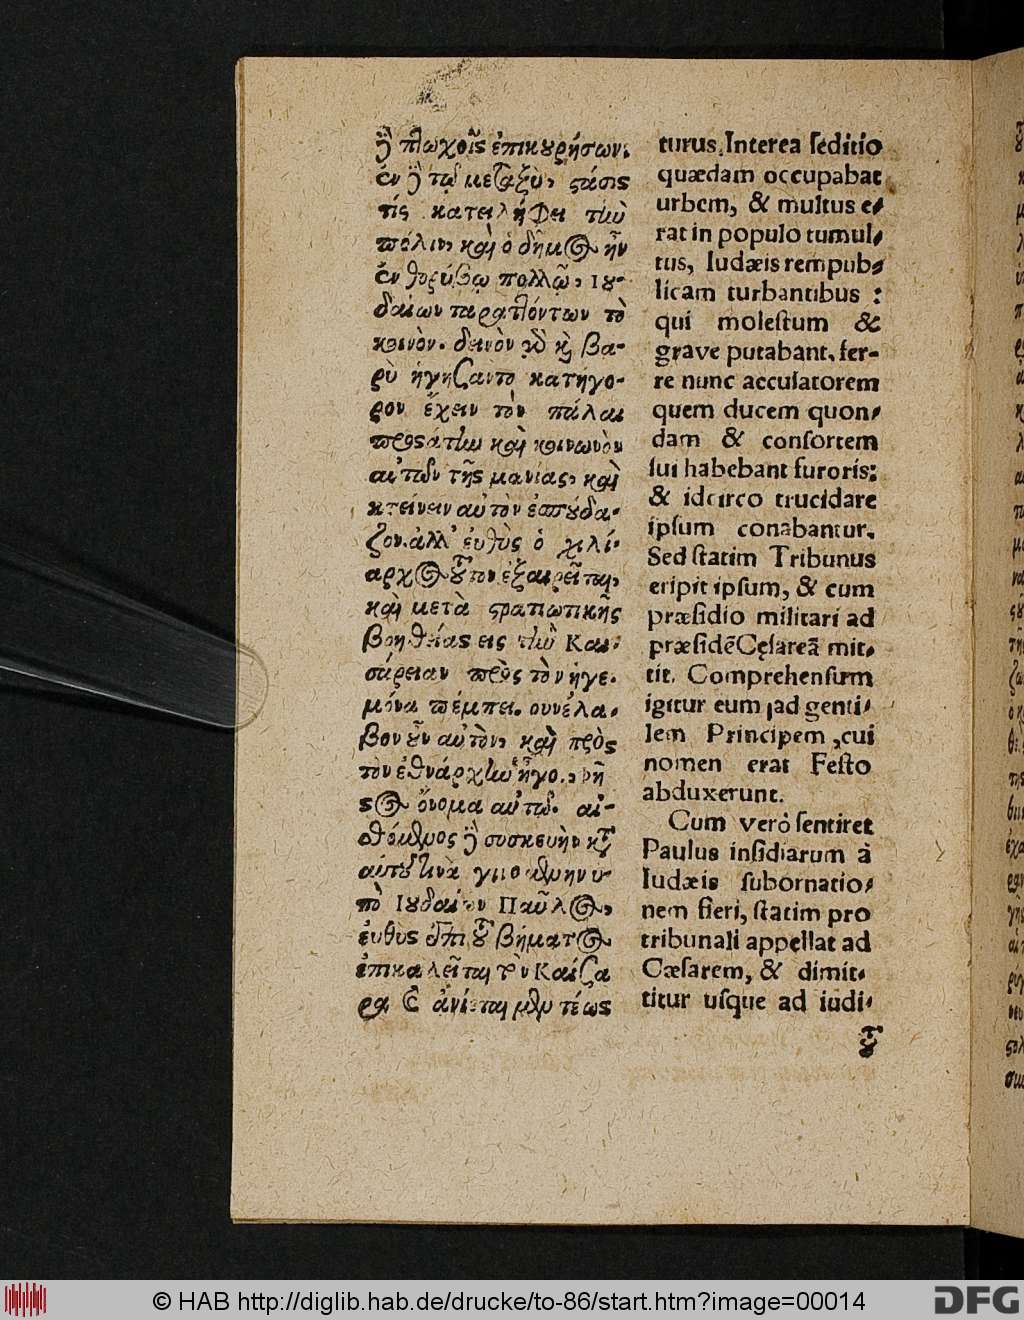 ἢ πτωχοῖς ἐπικουρήσων.
ἐν ᾧ τῷ μεταξὺ, στάσις
τίς κατειλήφει τὴν
πόλιν, καὶ ὁ δῆμος ἦν
ἐν θορύβῳ πολλῷ, Ιου-
δαίων ταραττόντων τὸ
κοινὸν. δεινὸν γὰρ καὶ βα-
ρὺ ἡγήσαντο κατήγο-
ρον ἔχειν τὸν πάλαι
προστάτην καὶ κοινωνὸν
αὐτῶν τῆς μανίας, καὶ
κτείνειν αὐτὸν ἐσπούδα-
ζον. ἀλλ' ἐυθὺς ὁ χιλί-
αρχος τοῦτον ἐξαιρεῖται,
καὶ μετὰ στρατιωτικῆς
βοηθείας εις τὴν Και-
σάρειαν πρὸς τὸν ἡγε-
μόνα πέμπει. συνέλα-
βον οὖν αὐτὸν, καὶ πρὸς
τὸν ἐθνάρχην ἦγον, φῆ
στος ὄνομα αὐτῷ. αἰ-
θόμενος
αὐτοῦ τινὰ γινομένην ὑ-
πὸ Ιουδαίων Παῦλος,
ἐυθὺς ἐπὶ τοῦ βήματος
ἐπικαλεῖται τὸν Καίσα
ρα τέως
turus. Interea seditio
quædam occupabat
urbem, & multus e-
rat in populo tumul-
tus, Iudæis rempub-
licam turbantibus :
qui molestum &
grave putabant, fer-
re nunc accusatorem
quem ducem quon-
dam & consortem
sui habebant furoris:
& idcirco trucidare
ipsum conabantur.
Sed statim Tribunus
eripit ipsum, & cum
præsidio militari ad
præsidẽ Cęsareã mit-
tit. Comprehensum
igitur eum ad genti-
lem Principem, cui
nomen erat Festo
abduxerunt.
Cum verò sentiret
Paulus insidiarum à
Iudæis subornatio-
nem fieri, statim pro
tribunali appellat ad
Cæsarem, & dimit-
titur usque ad iudi-
τοῦ
© HAB http://diglib.hab.de/drucke/to-86/start.htm?image=00014
DFG